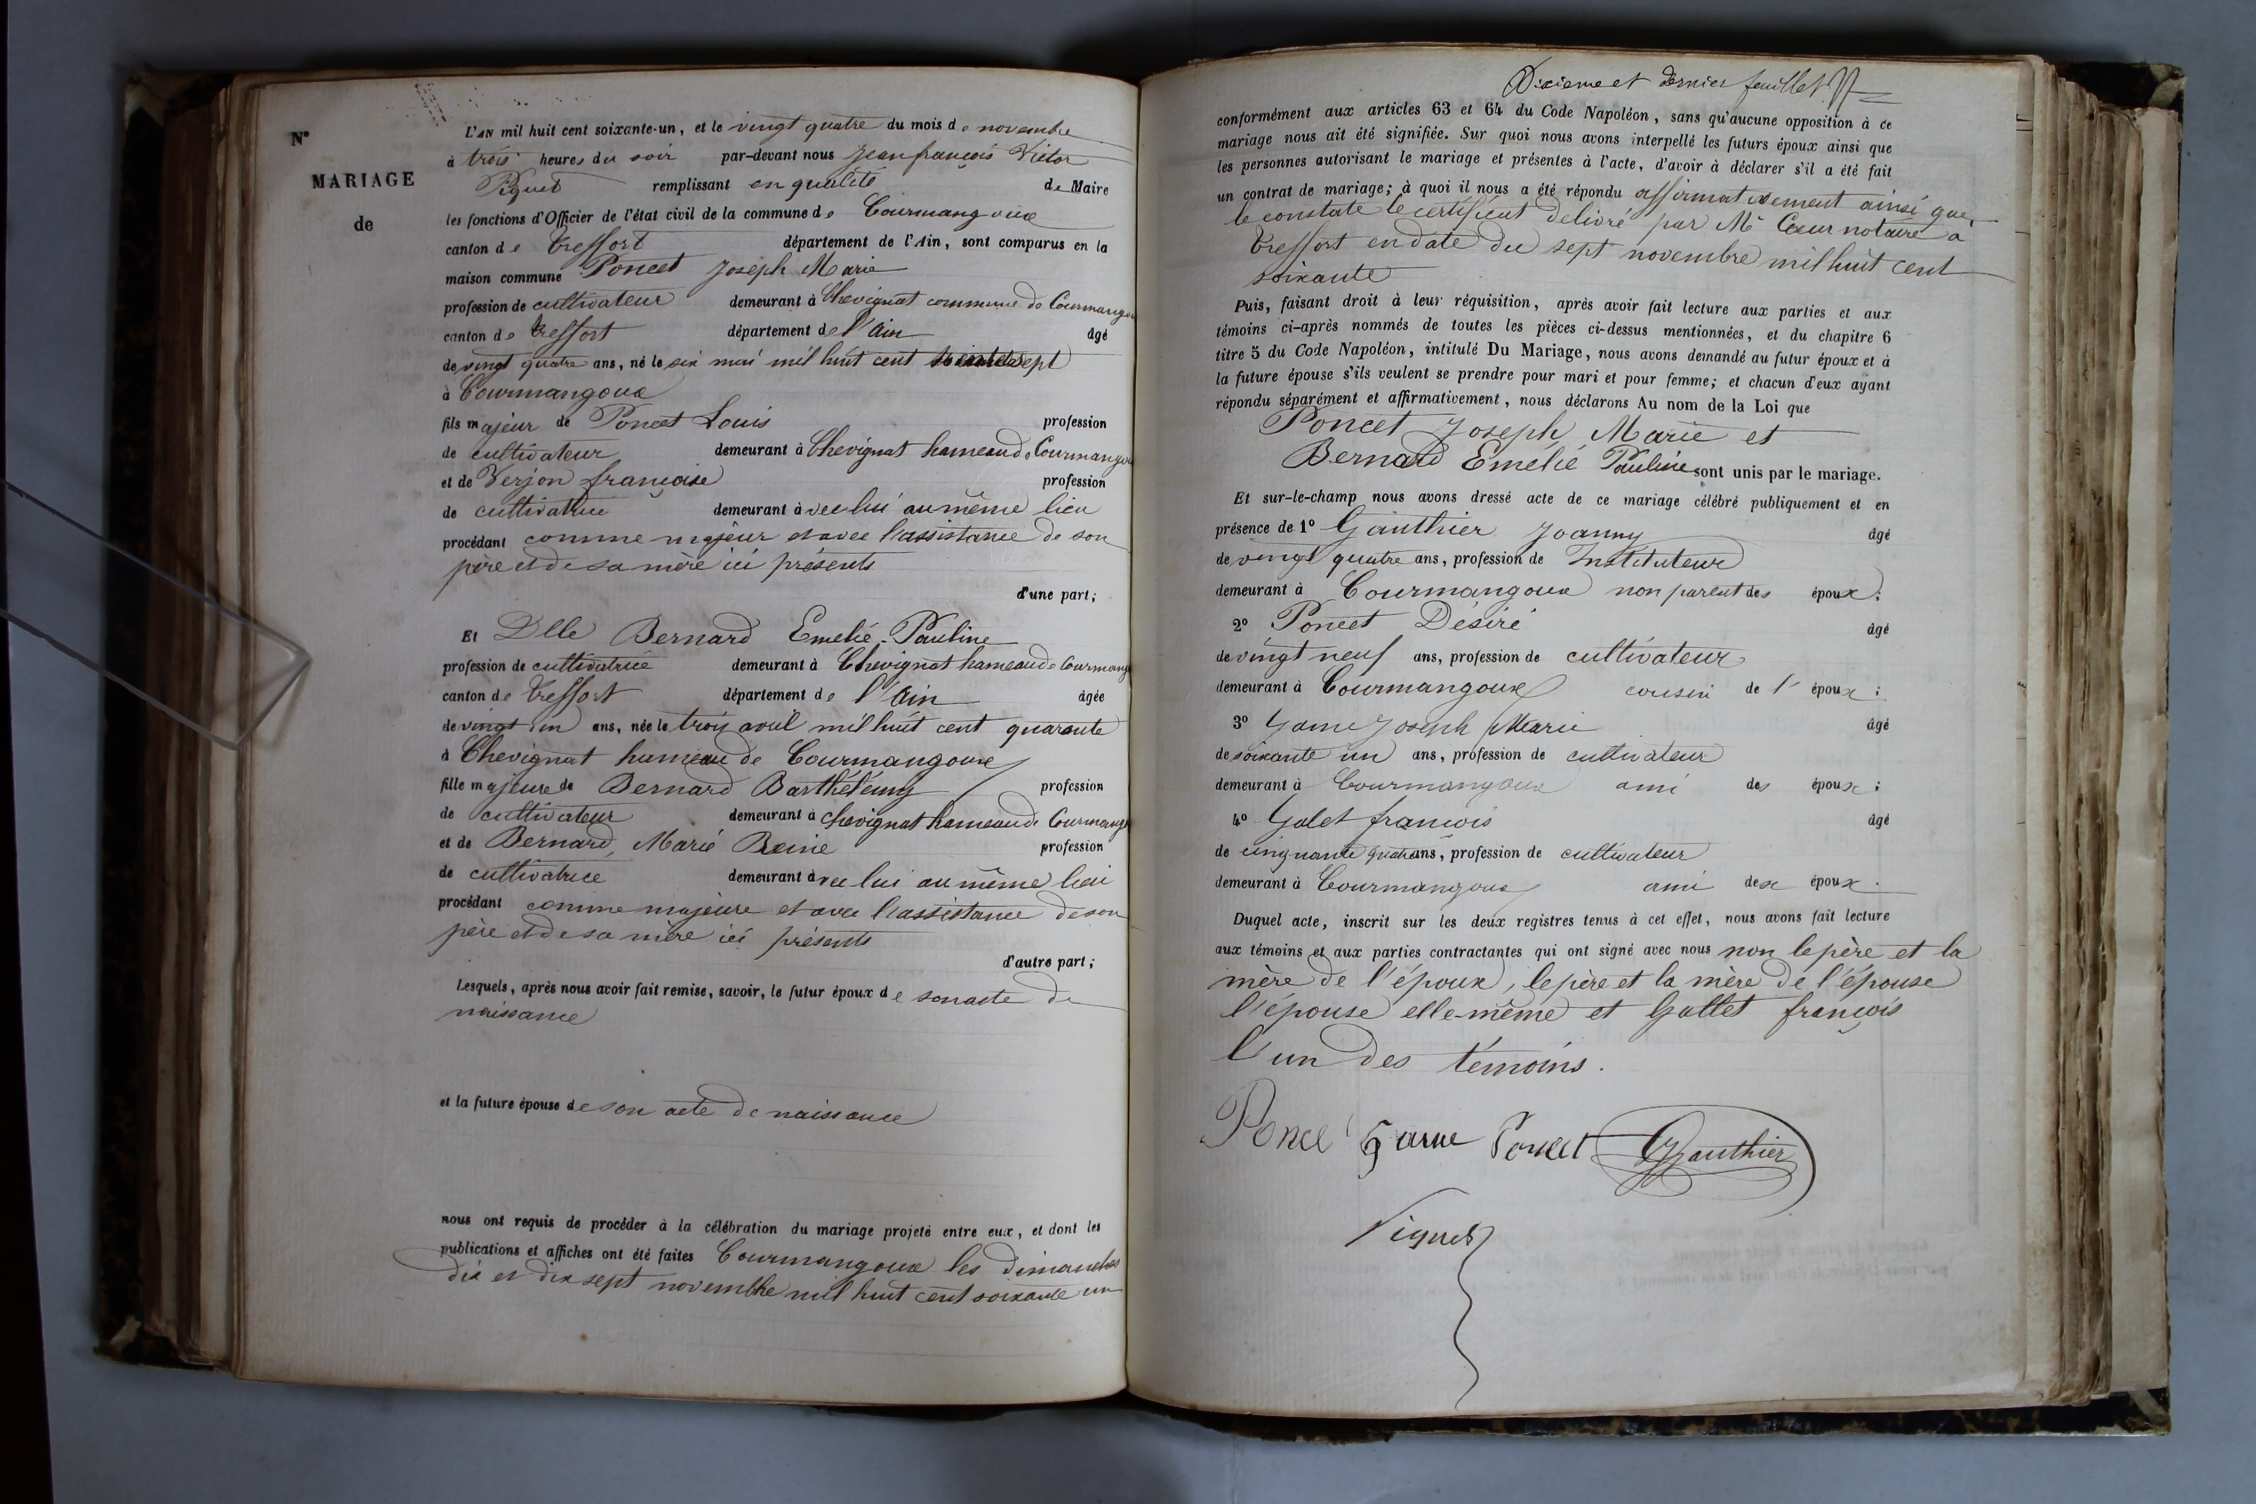 N°
MARIAGE
de
L'AN mil huit cent soixante-un, et le vingt quatre du mois de novembre
à trois heures du soir par-devant nous Jean françois Victor
Piquet remplissant en qualité de Maire
les fonctions d'Officier de l'état civil de la commune de Courmangoux
canton de Treffort département de l'Ain, sont comparus en la
maison commune Poncet Joseph Marie
profession de cultivateur demeurant à Chevignat commune de Courmangou
canton de Treffort département de l'Ain âgé
de vingt quatre ans, né le six mai mil huit cent trente sept
à Courmangoux
fils majeur de Poncet Louis profession
de cultivateur demeurant à Chevignat hameau de Courmangou
et de Verjon françoise profession
de cultivatrice demeurant avec lui au même lieu
procédant comme majeur et avec l'assistance de son
père et de sa mère ici présents
d'une part;
Et Dlle Bernard Emelie Pauline
profession de cultivatrice demeurant à Chevignat hameau de Courmang
canton de Treffort département de l'Ain âgée
de vingt un ans, née le trois avril mil huit cent quarante
à Chevignat hameau de Courmangoux
fille majeure de Bernard Barthélémy profession
de cultivateur demeurant à Chevignat hameau de Courmang
et de Bernard Marie Reine profession
de cultivatrice demeurant avec lui au même lieu
procédant comme majeure et avec l'assistance de son
père et de sa mère ici présents
d'autre part;
Lesquels, après nous avoir fait remise, savoir, le futur époux de son acte de
naissance
et la future épouse de son acte de naissance
nous ont requis de procéder à la célébration du mariage projeté entre eux, et dont les
publications et affiches ont été faites Courmangoux les dimanches
dix et dix sept novembre mil huit cent soixante un
Dixieme et dernier feuillet
conformément aux articles 63 et 64 du Code Napoléon, sans qu'aucune opposition à ce
mariage nous ait été signifiée. Sur quoi nous avons interpellé les futurs époux ainsi que
les personnes autorisant le mariage et présentes à l'acte, d'avoir à déclarer s'il a été fait
un contrat de mariage; à quoi il nous a été répondu affirmativement ainsi que
le constate le certificat delivré par Me Cœur notaire à
Treffort en date du sept novembre mil huit cent
soixante
Puis, faisant droit à leur réquisition, après avoir fait lecture aux parties et aux
témoins ci-après nommés de toutes les pièces ci-dessus mentionnées, et du chapitre 6
titre 5 du Code Napoléon, intitulé Du Mariage, nous avons demandé au futur époux et à
la future épouse s'ils veulent se prendre pour mari et pour femme; et chacun d'eux ayant
répondu séparément et affirmativement, nous déclarons Au nom de la Loi que
Poncet Joseph Marie et
Bernard Emelie Pauline sont unis par le mariage.
Et sur-le-champ nous avons dressé acte de ce mariage célébré publiquement et en
présence de 1° Gauthier Joanny âgé
de vingt quatre ans, profession de Instituteur
demeurant à Courmangoux non parent des époux;
2° Poncet Désiré âgé
de vingt neuf ans, profession de cultivateur
demeurant à Courmangoux cousin de l' époux;
3° Game Joseph Marie âgé
de soixante un ans, profession de cultivateur
demeurant à Courmangoux ami des époux;
4° Galet francois âgé
de cinquante quatre ans, profession de cultivateur
demeurant à Courmangoux ami des époux.
Duquel acte, inscrit sur les deux registres tenus à cet effet, nous avons fait lecture
aux témoins et aux parties contractantes qui ont signé avec nous non le père et la
mère de l'époux, le père et la mère de l'épouse
l'épouse elle-même et Gallet françois
l'un des témoins.
Poncet Game Poncet Gauthier
Piquet